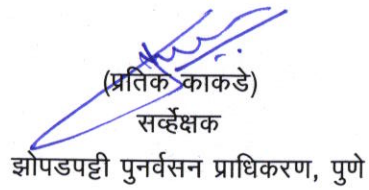 (प्रतिक काकडे)
सर्व्हेक्षक
झोपडपट्टी पुनर्वसन प्राधिकरण, पुणे